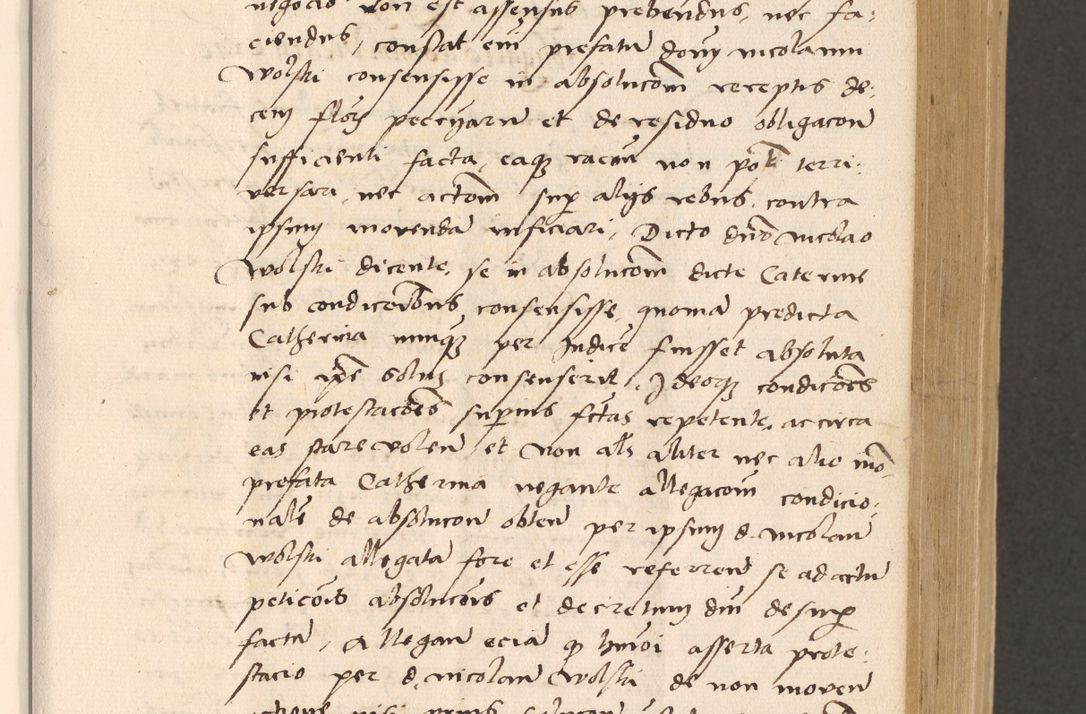 negocio non est assensus prebendus, nec fa:
ciendus, constat eni prefatu dominu nicolaum
Wolski consensisse in absolucom receptis de:
cem flor peccuaru et de residuo obligacon
sufficienti facta, eaqz racom non pot terri:
versari, nec actom sup alijs rebus contra
ipsum movenda inficiari, Dicto dno nicolao
Wolski dicente, se in absolucom dicte Caterine
sub condicionibus consensisse, quoniam predicta
Catherina nunqz per Judice fuisset absoluta
nisi ipse solus consenserit, Ideoqz condicoes
et protestacoes superius fctas repetente, ac circa
eas stare volen et non als aliter nec alio mo
prefata Catherina negante allegacom condicio:
nale de absolucon obten per ipsum d. nicolau
Wolski allegata fore et esse referren se ad actu
peticois absolucois et decretum dni desup
factu, Allegan ecia q hmoi asserta prote:
stacio per d. nicolau Wolski de non moven
nisi prius